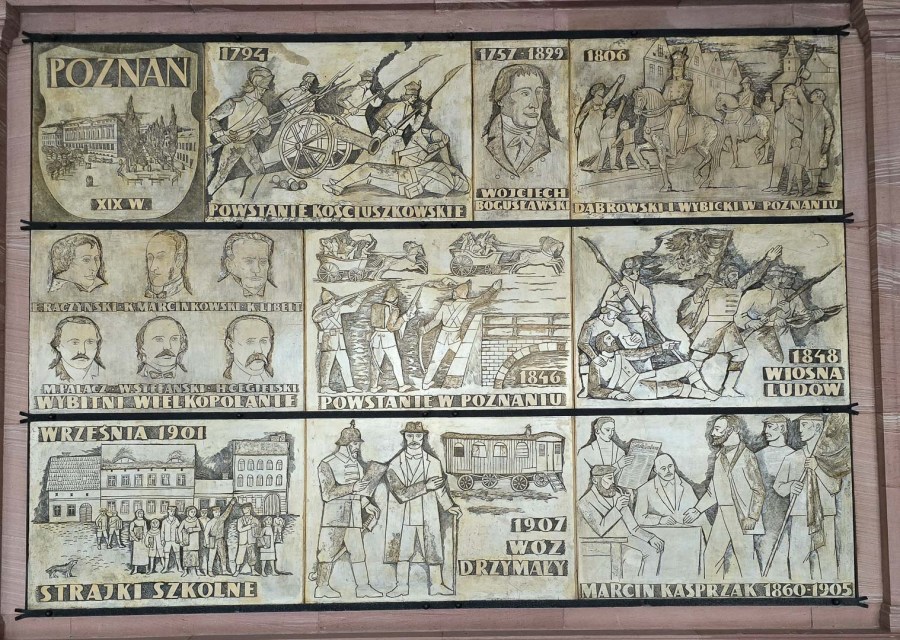 POZNAŃ
XIX W.
1794
POWSTANIE KOŚCIUSZKOWSKIE
1757-1829
WOJCIECH
BOGUSŁAWSKI
1806
DĄBROWSKI I WYBICKI W POZNANIU
E. RACZYŃSKI K. MARCINKOWSKI K. LIBELT
M. PALACZ W. STEFAŃSKI H. CEGIELSKI
WYBITNI WIELKOPOLANIE
1846
POWSTANIE W POZNANIU
1848
WIOSNA
LUDÓW
WRZEŚNIA 1901
STRAJKI SZKOLNE
1907
WÓZ
DRZYMAŁY
MARCIN KASPRZAK 1860-1905